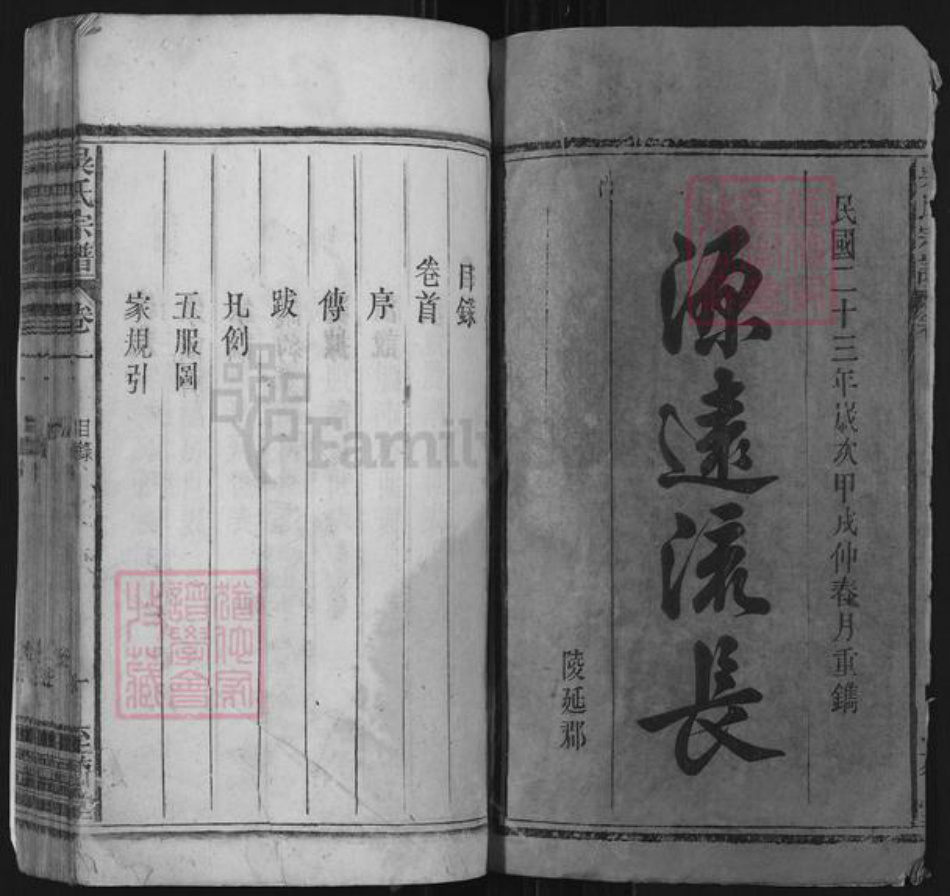 民國二十三年歲次甲戌仲春月重鐫
源遠流長
陵延郡
目錄
卷首
序
傳
跋
凡例
五服圖
家規引
吳氏宗譜
卷一
目錄
一
譜學會
收藏
Family